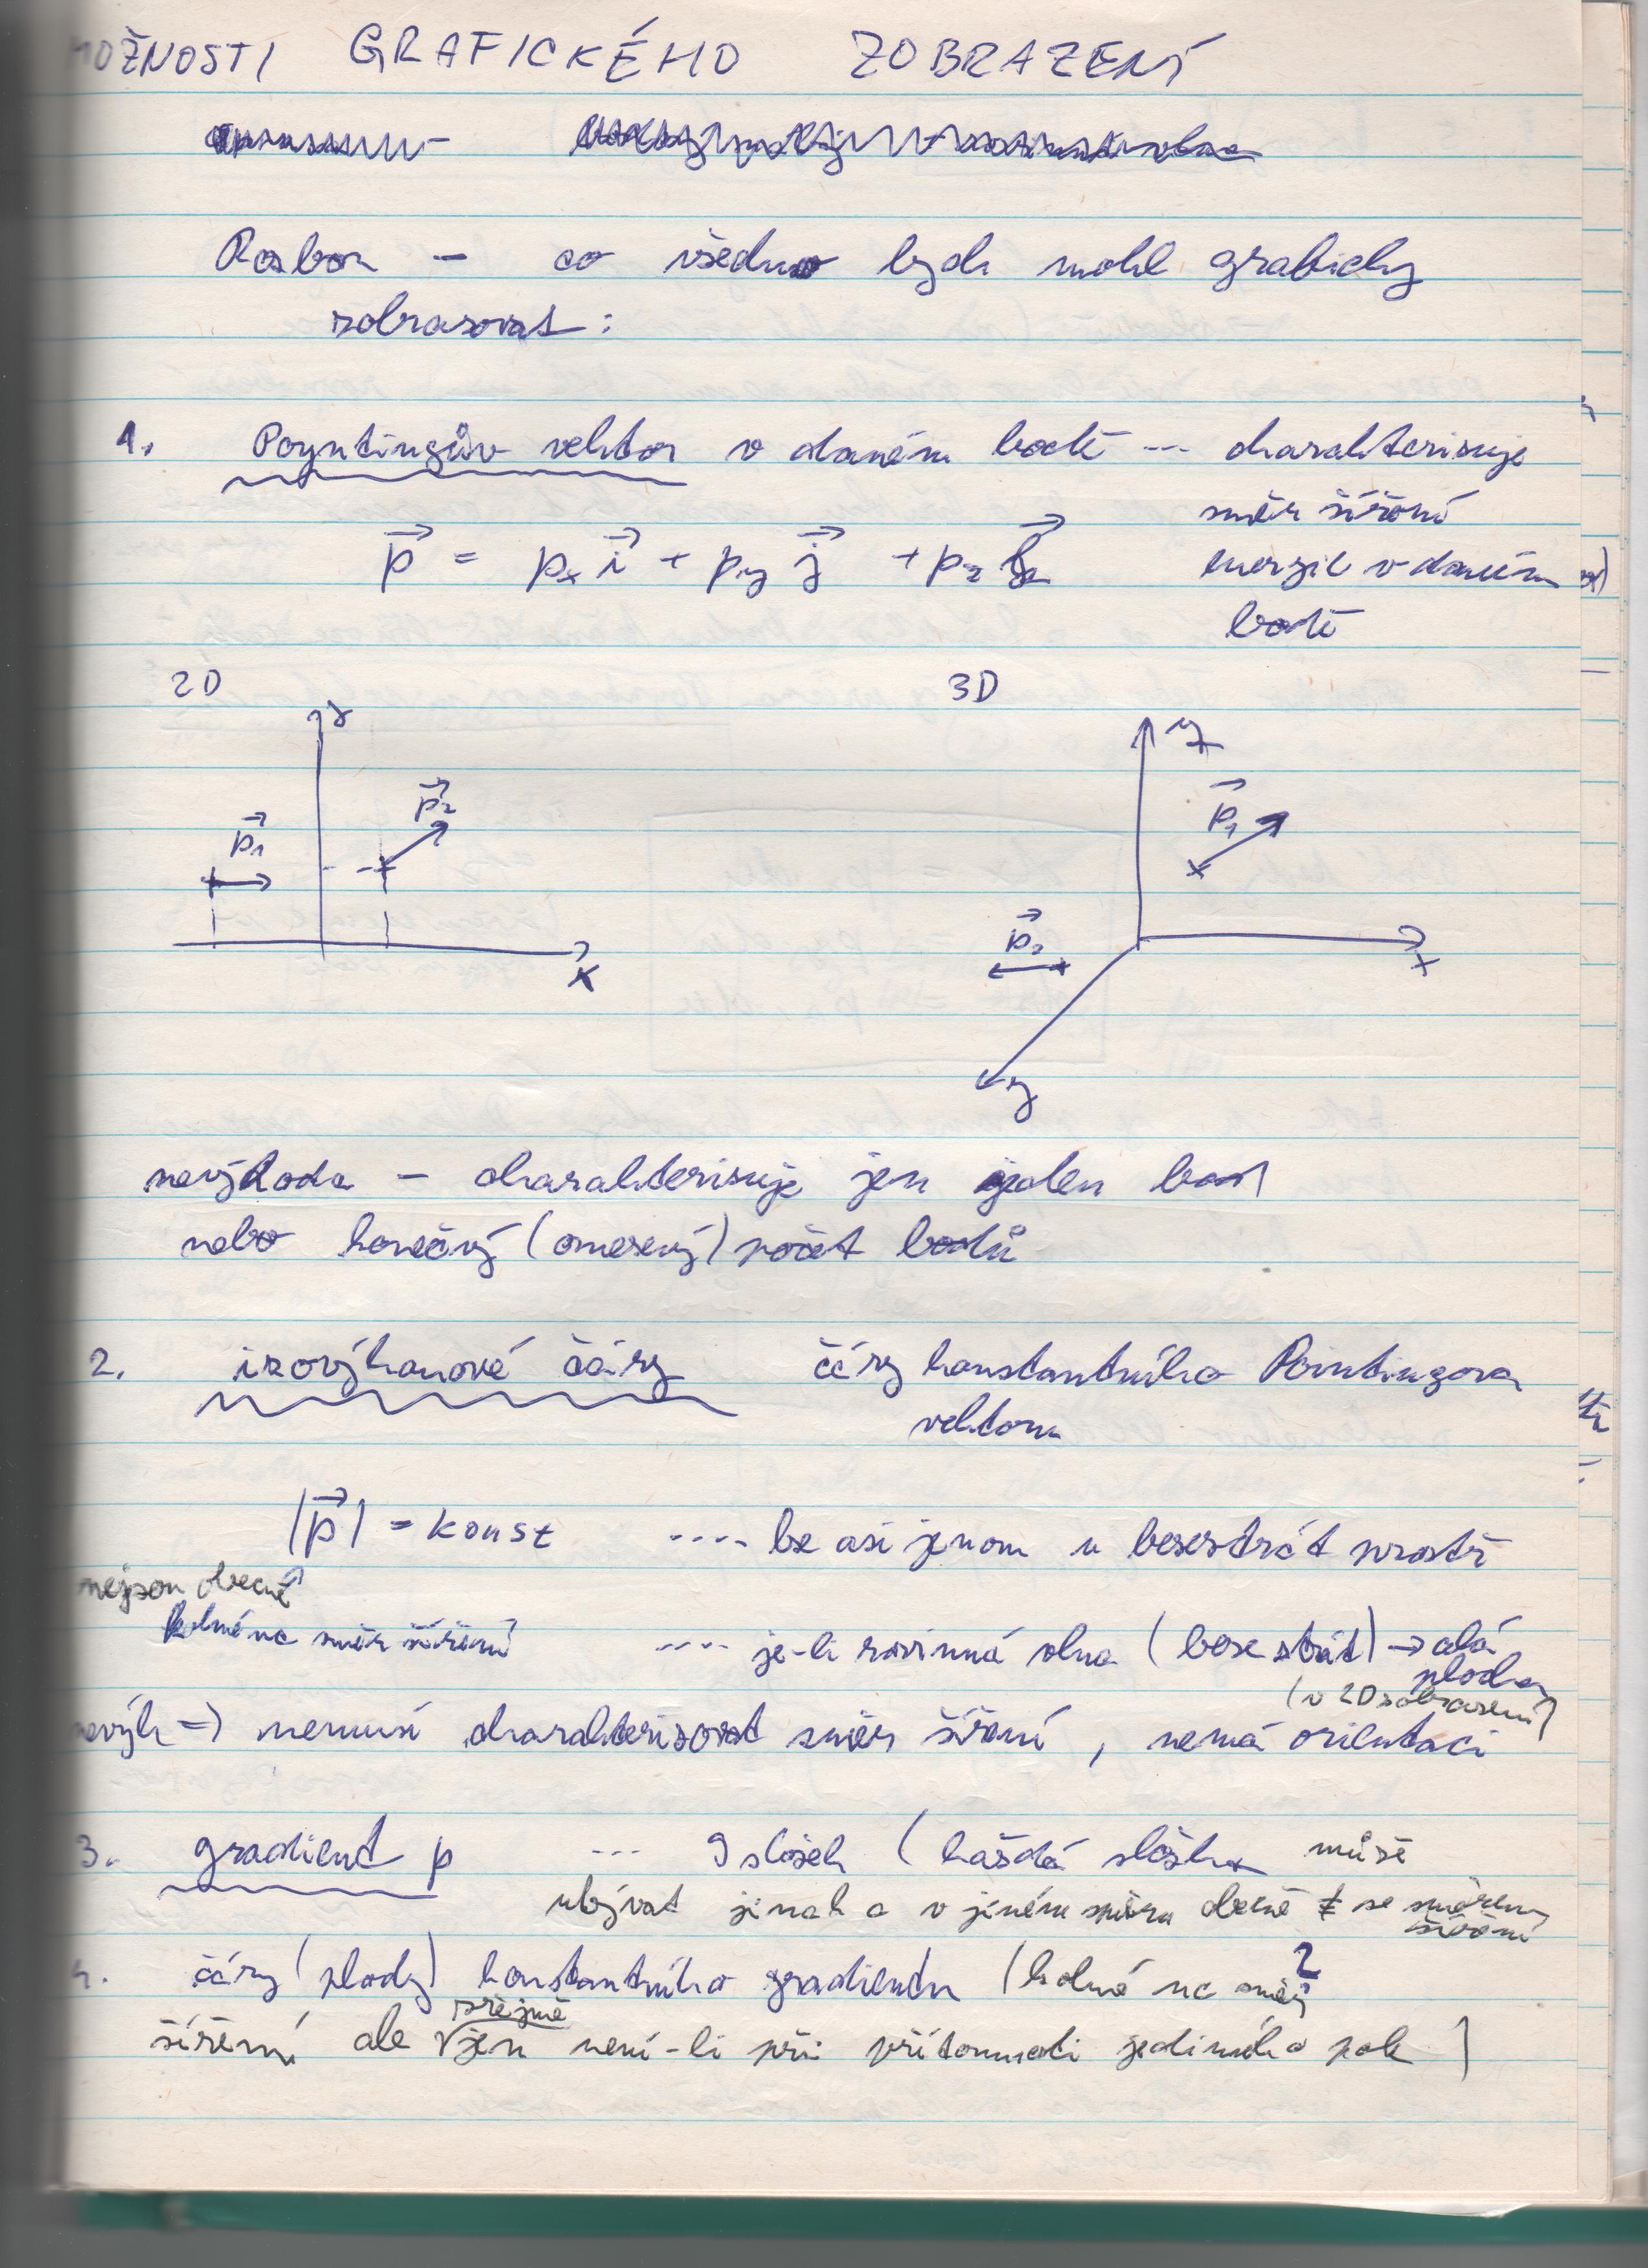 MOŽNOSTI GRAFICKÉHO ZOBRAZENÍ
Rozbor – co všechno bych mohl graficky
zobrazovat :
1. Poyntingův vektor v daném bodě --- charakterizuje
směr šíření
p⃗ = pₓ i⃗ + p_y j⃗ + p_z k⃗ energie v daném
bodě
2D 3D
y y
p⃗₂ p⃗₁
p⃗₁
p⃗₂
x x
z
nevýhoda – charakterizuje jen jeden bod
nebo konečný (omezený) počet bodů
2. izovýkonové čáry čáry konstantního Pointingova
vektoru
|p⃗| = konst ---- lze asi jenom u bezeztrát prostř
nejsou obecně
kolmé na směr šíření ---- je-li rovinná vlna (beze ztrát) → celá
plocha
(v 2D zobrazení)
nevýh ⇒ nemusí charakterizovat směr šíření, nemá orientaci
3. gradient p --- 9 složek (každá složka může
ubývat jinak a v jiném směru obecně ≠ se směrem
šíření
4. čáry (plochy) konstantního gradientu (kolmé na směr ?
zřejmě
šíření ale jen není-li při přítomnosti jediného pole )